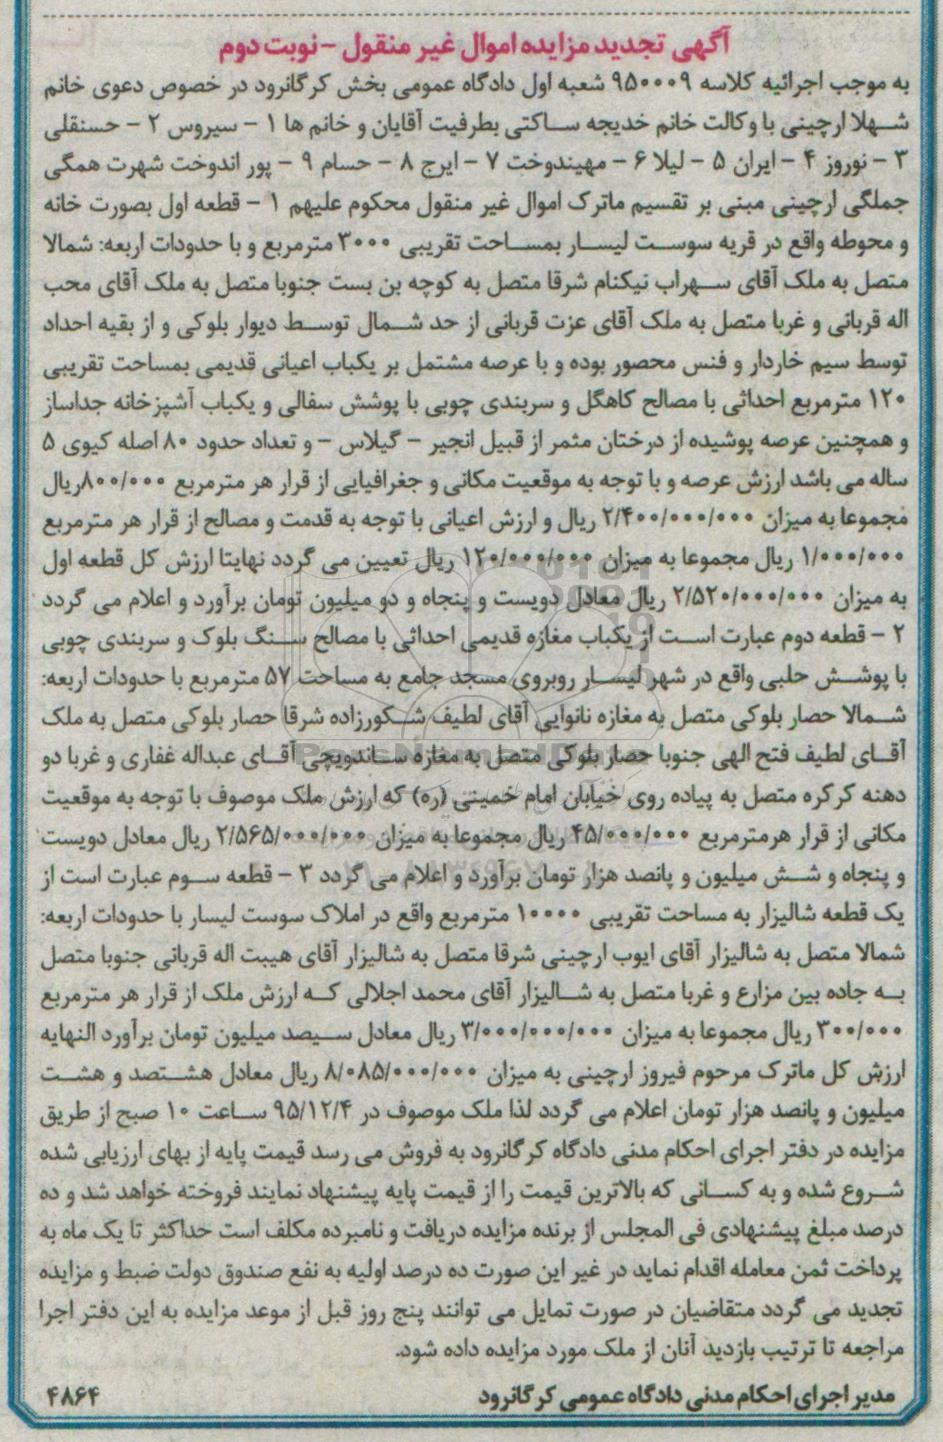 آگهی تجدید مزایده اموال غیر منقول - نوبت دوم
به موجب اجرائیه کلاسه ۹۵۰۰۰۹ شعبه اول دادگاه عمومی بخش کرگانرود در خصوص دعوی خانم
شهلا ارچینی با وکالت خانم خدیجه ساکتی بطرفیت آقایان و خانم ها ۱ - سیروس ۲ - حسنقلی
۳ - نوروز ۴ - ایران ۵ - لیلا ۶ - مهیندوخت ۷ - ایرج ۸ - حسام ۹ - پور اندوخت شهرت همگی
جملگی ارچینی مبنی بر تقسیم ماترک اموال غیر منقول محکوم علیهم ۱ - قطعه اول بصورت خانه
و محوطه واقع در قریه سوست لیسار بمساحت تقریبی ۳۰۰۰ مترمربع و با حدودات اربعه: شمالا
متصل به ملک آقای سهراب نیکنام شرقا متصل به کوچه بن بست جنوبا متصل به ملک آقای محب
اله قربانی و غربا متصل به ملک آقای عزت قربانی از حد شمال توسط دیوار بلوکی و از بقیه احداد
توسط سیم خاردار و فنس محصور بوده و با عرصه مشتمل بر یکباب اعیانی قدیمی بمساحت تقریبی
۱۲۰ مترمربع احداثی با مصالح کاهگل و سربندی چوبی با پوشش سفالی و یکباب آشپزخانه جداساز
و همچنین عرصه پوشیده از درختان مثمر از قبیل انجیر - گیلاس - و تعداد حدود ۸۰ اصله کیوی ۵
ساله می باشد ارزش عرصه و با توجه به موقعیت مکانی و جغرافیایی از قرار هر مترمربع ۸۰۰/۰۰۰ریال
مجموعا به میزان ۲/۴۰۰/۰۰۰/۰۰۰ ریال و ارزش اعیانی با توجه به قدمت و مصالح از قرار هر مترمربع
۱/۰۰۰/۰۰۰ ریال مجموعا به میزان ۱۲۰/۰۰۰/۰۰۰ ریال تعیین می گردد نهایتا ارزش کل قطعه اول
به میزان ۲/۵۲۰/۰۰۰/۰۰۰ ریال معادل دویست و پنجاه و دو میلیون تومان برآورد و اعلام می گردد
۲ - قطعه دوم عبارت است از یکباب مغازه قدیمی احداثی با مصالح سنگ بلوک و سربندی چوبی
با پوشش حلبی واقع در شهر لیسار روبروی مسجد جامع به مساحت ۵۷ مترمربع با حدودات اربعه:
شمالا حصار بلوکی متصل به مغازه نانوایی آقای لطیف شکورزاده شرقا حصار بلوکی متصل به ملک
آقای لطیف فتح الهی جنوبا حصار بلوکی متصل به مغازه ساندویچی آقای عبداله غفاری و غربا دو
دهنه کرکره متصل به پیاده روی خیابان امام خمینی (ره) که ارزش ملک موصوف با توجه به موقعیت
مکانی از قرار هرمترمربع ۴۵/۰۰۰/۰۰۰ ریال مجموعا به میزان ۲/۵۶۵/۰۰۰/۰۰۰ ریال معادل دویست
و پنجاه و شش میلیون و پانصد هزار تومان برآورد و اعلام می گردد ۳ - قطعه سوم عبارت است از
یک قطعه شالیزار به مساحت تقریبی ۱۰۰۰۰ مترمربع واقع در املاک سوست لیسار با حدودات اربعه:
شمالا متصل به شالیزار آقای ایوب ارچینی شرقا متصل به شالیزار آقای هیبت اله قربانی جنوبا متصل
به جاده بین مزارع و غربا متصل به شالیزار آقای محمد اجلالی که ارزش ملک از قرار هر مترمربع
۳۰۰/۰۰۰ ریال مجموعا به میزان ۳/۰۰۰/۰۰۰/۰۰۰ ریال معادل سیصد میلیون تومان برآورد النهایه
ارزش کل ماترک مرحوم فیروز ارچینی به میزان ۸/۰۸۵/۰۰۰/۰۰۰ ریال معادل هشتصد و هشت
میلیون و پانصد هزار تومان اعلام می گردد لذا ملک موصوف در ۹۵/۱۲/۴ ساعت ۱۰ صبح از طریق
مزایده در دفتر اجرای احکام مدنی دادگاه کرگانرود به فروش می رسد قیمت پایه از بهای ارزیابی شده
شروع شده و به کسانی که بالاترین قیمت را از قیمت پایه پیشنهاد نمایند فروخته خواهد شد و ده
درصد مبلغ پیشنهادی فی المجلس از برنده مزایده دریافت و نامبرده مکلف است حداکثر تا یک ماه به
پرداخت ثمن معامله اقدام نماید در غیر این صورت ده درصد اولیه به نفع صندوق دولت ضبط و مزایده
تجدید می گردد متقاضیان در صورت تمایل می توانند پنج روز قبل از موعد مزایده به این دفتر اجرا
مراجعه تا ترتیب بازدید آنان از ملک مورد مزایده داده شود.
مدیر اجرای احکام مدنی دادگاه عمومی کرگانرود ۴۸۶۴